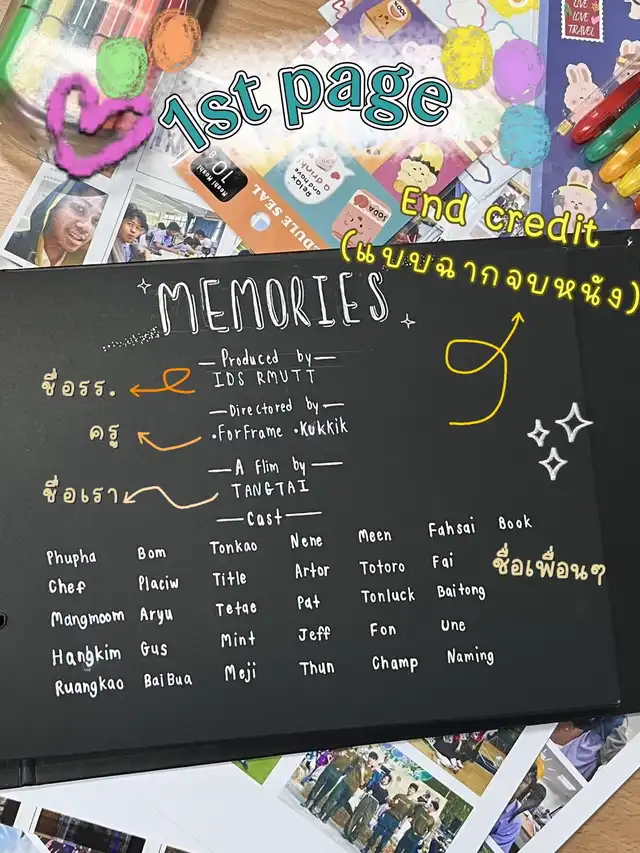 1st page
LIVE LOVE TRAVEL
Relax and have a drink
SODA
End credit
(แบบฉากจบหนัง)
MEMORIES
Produced by
IDS RMUTT
ชื่อรร.
Directored by
•ForFrame •Kukkik
ครู
A Flim by
TANGTAI
ชื่อเรา
Cast
Phupha Bom Tonkao Nene Meen Fahsai Book
Chef Placiw Title Artor Totoro Fai
ชื่อเพื่อนๆ
Mangmoom Aryu Tetae Pat Tonluck Baitong
Hangkim Gus Mint Jeff Fon Une
Ruangkao BaiBua Meji Thun Champ Naming